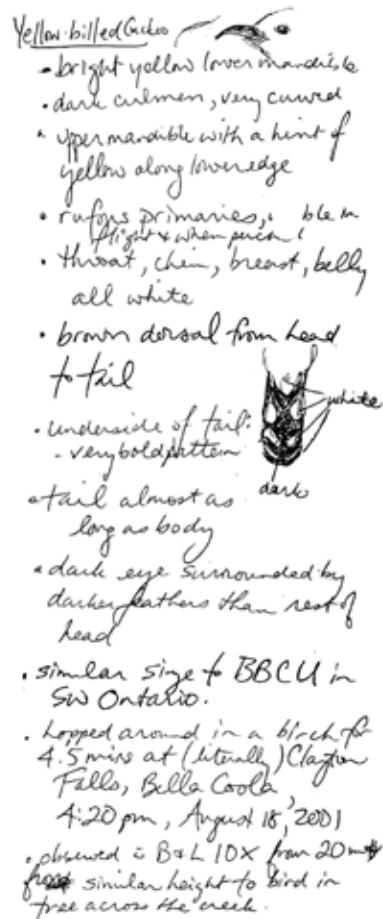 Yellow-billed Cuckoo
• bright yellow lower mandible
• dark culmen, very curved
• upper mandible with a hint of
yellow along lower edge
• rufous primaries,
flight & when
• throat, chin, breast, belly
all white
• brown dorsal from head
to tail
white
• underside of tail:
- very bold pattern
dark
• tail almost as
long as body
• dark eye surrounded by
darker feathers than rest of
head
• similar size to BBCU in
SW Ontario.
• hopped around in a birch for
4.5 mins at (literally) Clayton
Falls, Bella Coola,
4:20 pm, August 18, 2001
• observed c̄ B&L 10X from 20 m
similar height to bird in
tree across the creek.